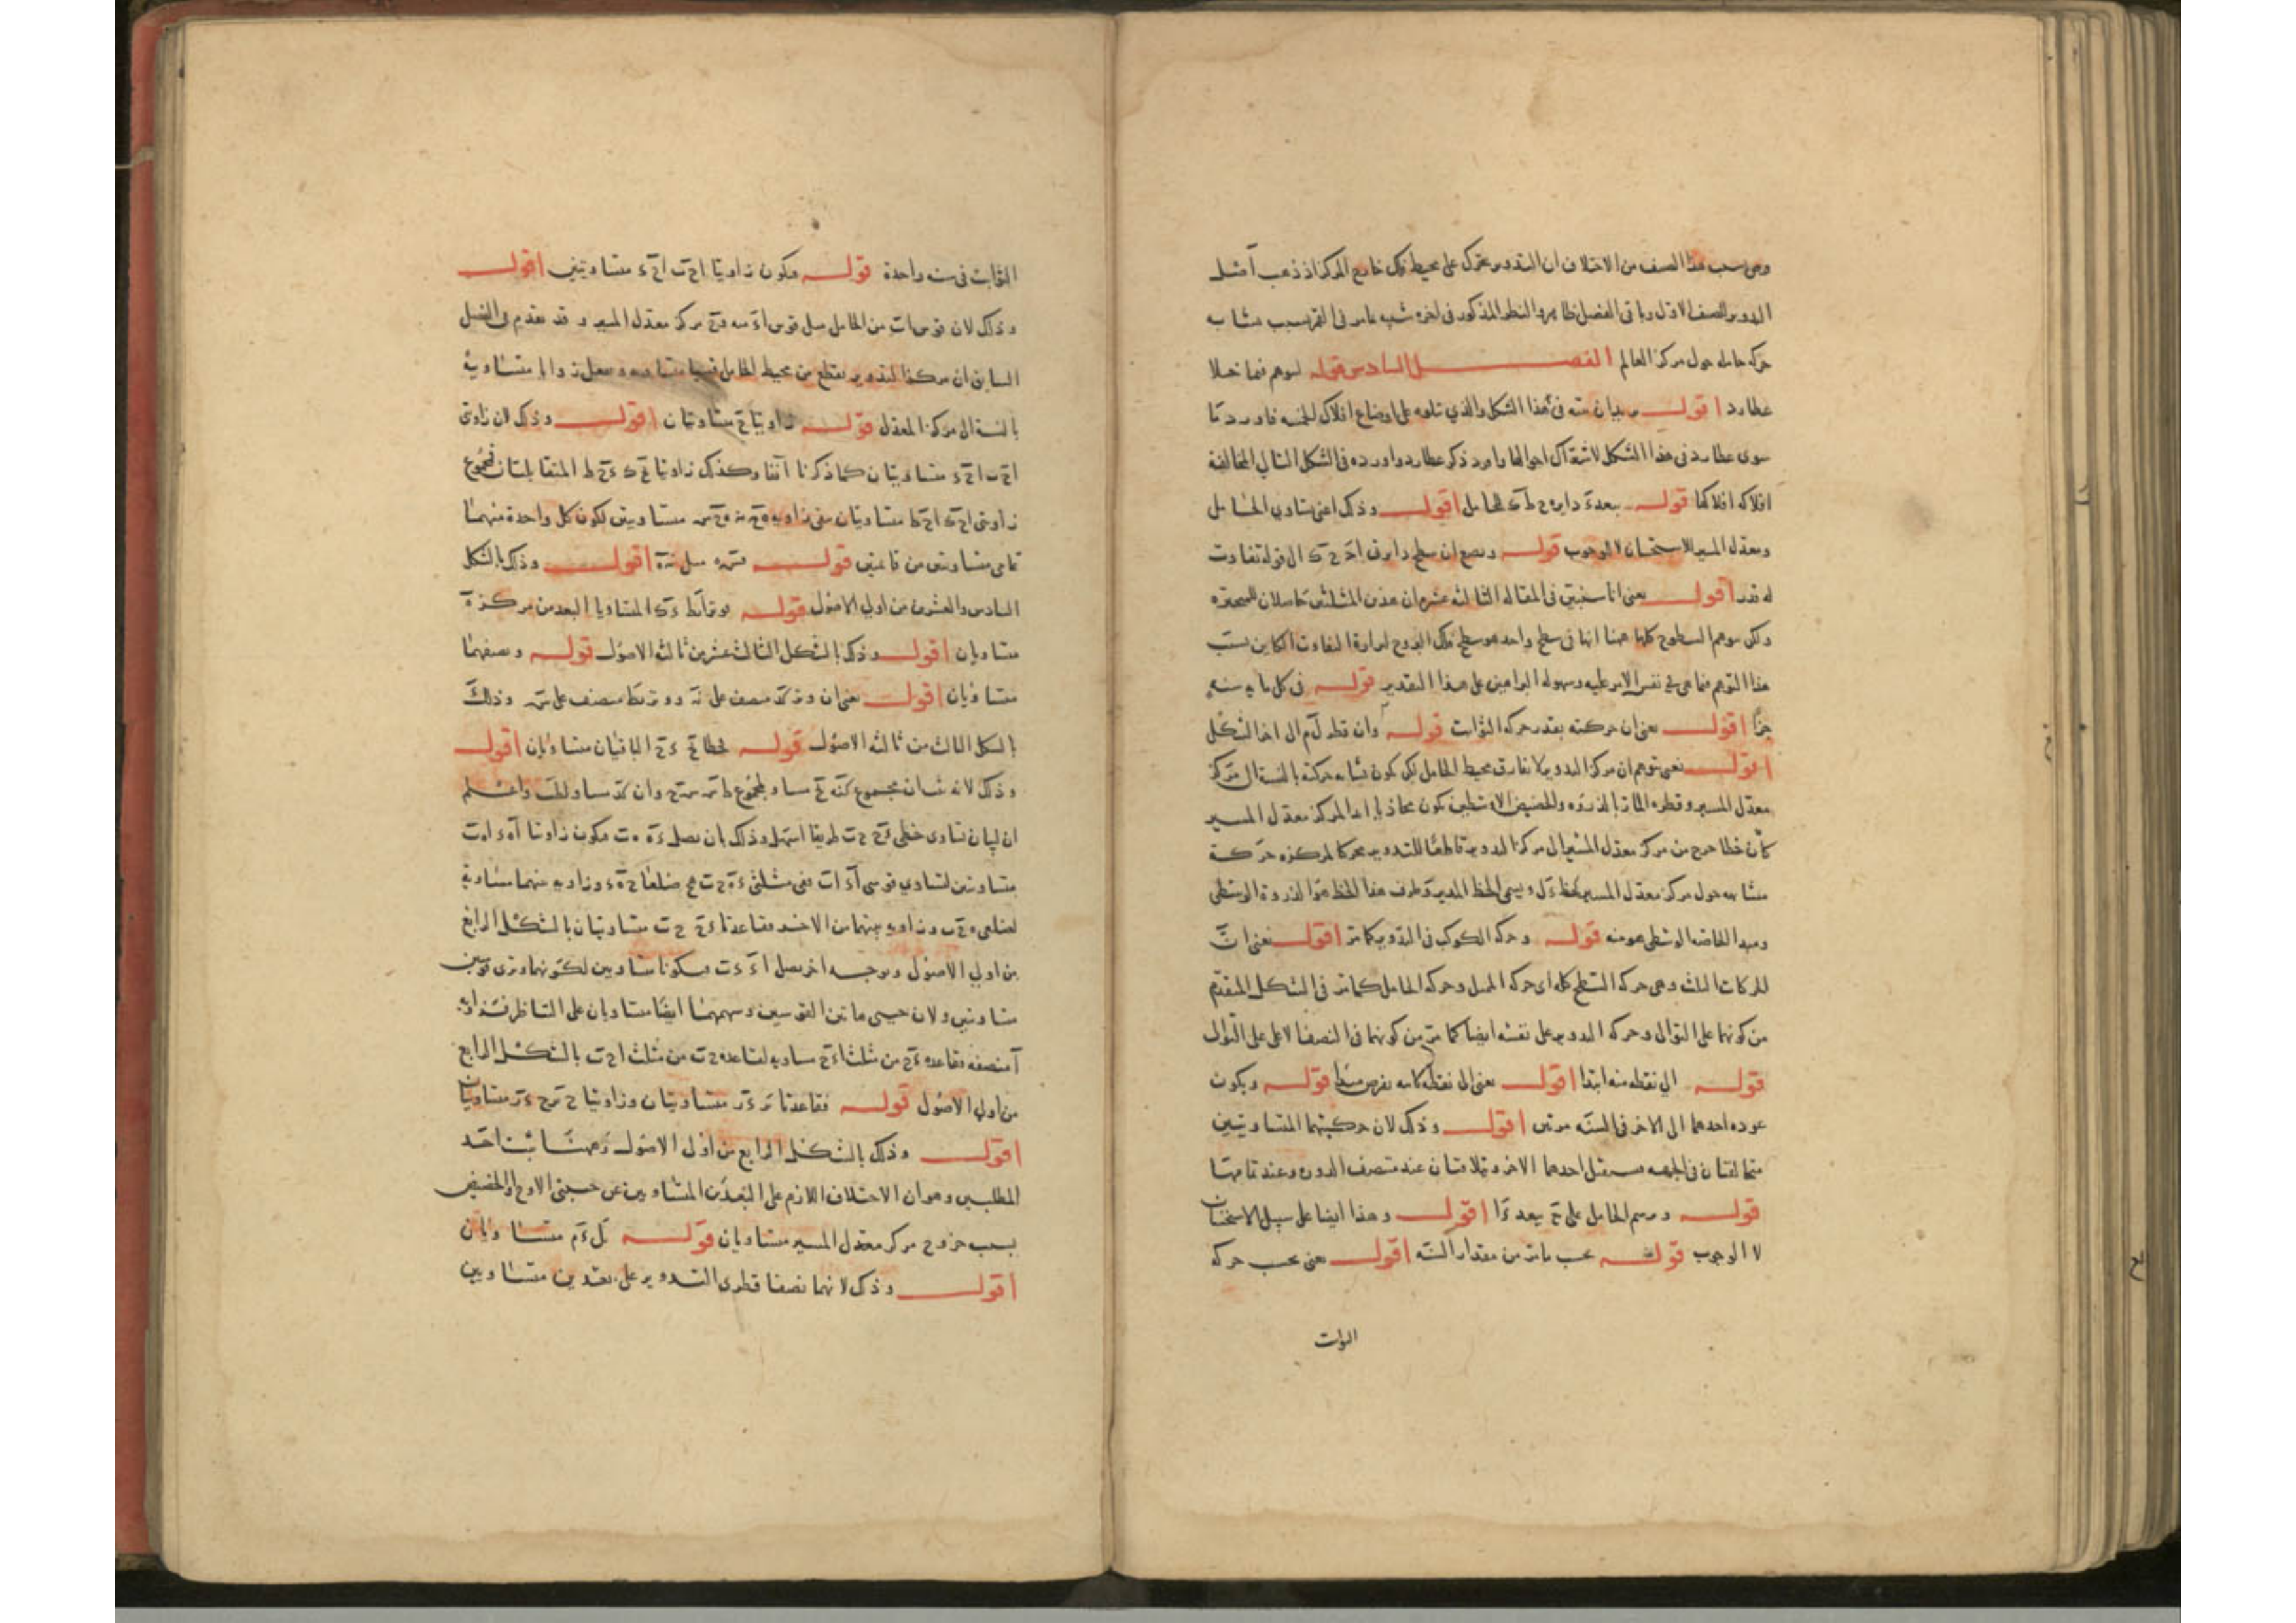 وهي سبب هذا الصنف من الاختلاف ان التدوير متحرك على محيط فلك خارج المركز اذ ذهب اصل
التدوير للصنف الاول وباقي الفصل ظاهر والنظر المذكور في اخره شبيه بما مر في القمر بسبب تشابه
حركة حامله حول مركز العالم الفصل السادس قوله لنوهم فيما خلا
عطارد اقول يريد ان ينبه في هذا الشكل والذي يتلوه على اوضاع افلاك الخمسة فاورد ما
سوى عطارد في هذا الشكل لاشتراك احوالها وافرد ذكر عطارد واورده في الشكل التالي لمخالفة
افلاكه افلاكها قوله ببعد ءَ دايرة ح ط ك للحامل اقول وذلك اعني تساوي الحامل
ومعدل المسير للاستحسان لا للوجوب قوله ونضع ان سطح دايرتي ا ح ك الى قوله تفاوت
له قدر اقول يعني انا سنبين في المقالة الثالثة عشر ان هذين المثلثين حاصلان للمتحيرة
ولكن نتوهم السطوح كلها ههنا انها في سطح واحد هو سطح فلك البروج لنزارة التفاوت الكاين بسبب
هذا التوهم فيما هي في نفس الامر عليه وسهولة البراهين على هذا التقدير قوله في كل ماية سنة
جزأ اقول يعني ان حركته بقدر حركة الثوابت قوله وان قطر ل م الى اخر الشكل
اقول يعني نتوهم ان مركز التدوير لا يفارق محيط الحامل لكن يكون تشابه حركته بالنسبة الى مركز
معدل المسير وقطره المار بالذروة والحضيض الاوسطين يكون محاذيا ابدا لمركز معدل المسير
كأن خطا خرج من مركز معدل المسير الى مركز التدوير قاطعا للتدوير محركا لمركزه حركة
متشابهة حول مركز معدل المسير كخط ءَ ل ويسمى الخط المدير وطرف هذا الخط هو الذروة الوسطى
ومبدا الخاصة الوسطى هو منه قوله وحركة الكوكب في التدوير كما مر اقول يعني ان
للحركات الثلاث وهي حركة السطح كله اي حركة الممثل وحركة الحامل كما مر في الشكل المتقدم
من كونهما على التوالي وحركة التدوير على نفسه ايضا كما مر من كونها في النصف الاعلى على التوالي
قوله الى نقطة منه ابتدا اقول يعني الى نقطة كانت نفرض مبدأ قوله ويكون
عودة احدهما الى الاخر في السنة مرتين اقول وذلك لان حركتيهما المتساويتين
متخالفتان في الجهة فيستقبل احدهما الاخر ويتلاقيان عند منتصف الدورة وعند تمامها
قوله ونرسم الحامل على ح ببعد ءَ ا اقول وهذا ايضا على سبيل الاستحسان
لا الوجوب قوله بحسب ما مر من مقدار السنة اقول يعني بحسب حركة
الثوابت
الثوابت في سنة واحدة قوله فيكون زاويتا ا ح ب ا ح ءَ متساويتين اقول
وذلك لان قوس ا ب من الحامل مثل قوس ا ءَ منه و ح مركز معدل المسير وقد تقدم في الفصل
السابق ان مركز التدوير يقطع من محيط الحامل قسيا متشابهة ويفعل زوايا متساوية
بالنسبة الى مركز المعدل قوله زاويتا ح متساويتان اقول وذلك لان زاويتي
ا ح ب ا ح ءَ متساويتان كما ذكرنا آنفا وكذلك زاويتا ه ح ك ءَ ح ط المتقابلتان فمجموع
زاويتي ا ح ك ا ح ط متساويتان فبقي زاويتا ه ح ن ه ح س متساويتين لكون كل واحدة منهما
تمامي متساويتين من قائمتين قوله ه س مثل ن ه اقول وذلك بالشكل
السادس والعشرين من اولى الاصول قوله فوترا ب ط ءَ ك المتساويا البعد من مركز ه
متساويان اقول وذلك بالشكل الثالث عشر من ثالثة الاصول قوله ونصفهما
متساويان اقول يعني ان وتر ك ءَ منصف على ن ووتر ب ط منصف على س وذلك
بالشكل الثالث من ثالثة الاصول قوله فخطا ب ح ءَ ح الباقيان متساويان اقول
وذلك لانه بان مجموع ك ن ن ح مساو لمجموع ط س س ح وان ك ءَ مساو لـ ط ب واعلم
ان لبيان تساوي خطي ءَ ح ح ب طريقا اسهل وذلك بان نصل ءَ ه ه ب فيكون زاويتا ا ه ءَ ا ه ب
متساويتين لتساوي قوسي ا ءَ ا ب ففي مثلثي ءَ ه ح ب ه ح ضلعا ح ه ه ءَ وزاوية بينهما مساوية
لضلعي ه ح ه ب وزاوية بينهما من الاخر فقاعدتا ءَ ح ح ب متساويتان بالشكل الرابع
من اولى الاصول وبوجه اخر نصل ا ءَ ا ب فيكونا متساويين لكونهما وتري قوسين
متساويتين ولان جيبي هاتين القوسين وسهمهما ايضا متساويان على التناظر فتزاوية
ا منصفة فقاعدة ءَ ح من مثلث ا ءَ ح مساوية لقاعدة ح ب من مثلث ا ح ب بالشكل الرابع
من اولى الاصول قوله فقاعدتا ب ر ءَ ر متساويتان وزاويتا ح ب ر ح ءَ ر متساويتان
اقول وذلك بالشكل الرابع من اولى الاصول وههنا ثبت احد
المطلبين وهو ان الاختلاف اللازم على البعدين المتساويين عن جنبتي الاوج والحضيض
بسبب خروج مركز معدل المسير متساويان قوله ب ل ءَ م متساويان
اقول وذلك لانهما نصفا قطري التدوير على بعدين متساويين